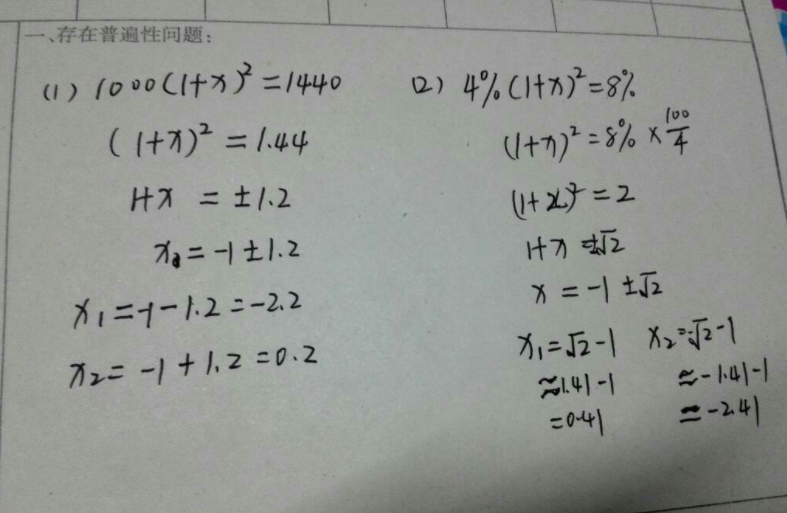 一、存在普遍性问题：
(1) 1000(1+x)²=1440
(1+x)²=1.44
1+x = ±1.2
x=-1±1.2
x₁=-1-1.2=-2.2
x₂=-1+1.2=0.2
(2) 4%(1+x)²=8%
(1+x)²=8%×100/4
(1+x)²=2
1+x=±√2
x=-1±√2
x₁=√2-1 x₂=-√2-1
≈1.41-1 ≈-1.41-1
=0.41 =-2.41